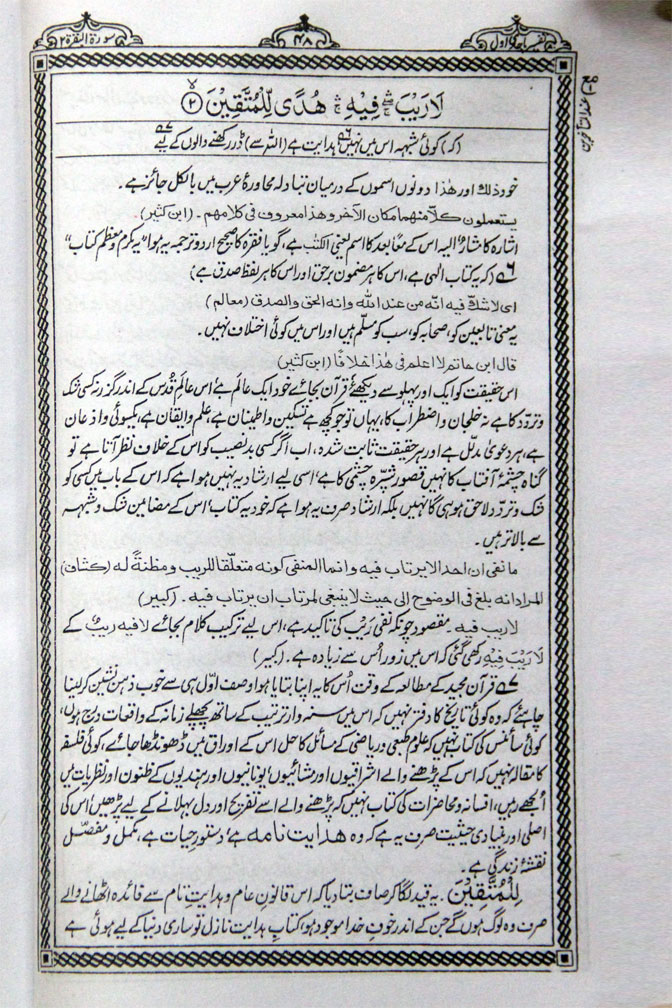 تفسیر ماجدی اول
۴۸
سورۃ البقرۃ ۲
لَا رَيْبَ ۛ فِيْهِ ۛ هُدًى لِّلْمُتَّقِيْنَ ۙ ۲
(کہ) کوئی شبہہ اس میں نہیں ۶ ہدایت ہے (اللہ سے) ڈر رکھنے والوں کے لیے ۷
خود ذلك اور هٰذا دونوں اسموں کے درمیان تبادلہ محاورۂ عرب میں بالکل جائز ہے۔
يستعملون كلّا منهما مكان الآخر وهذا معروف فى كلامهم۔ (ابن کثیر)
اشارہ کا مشارٌ الیہ اس کے معاً بعد کا اسم یعنی الکتٰب ہے، گویا فقرہ کا صحیح اردو ترجمہ یہ ہوا "یہ مکرم و معظم کتاب"
۶ (کہ یہ کتاب الٰہی ہے، اس کا ہر مضمون برحق اور اس کا ہر لفظ صدق ہے)
اى لا شكّ فيه انّه من عند الله وانه الحق والصدق (معالم)
یہ معنی تابعین کو، صحابہ کو، سب کو مسلّم ہیں اور اس میں کوئی اختلاف نہیں۔
قال ابن حاتم لا اعلم فى هٰذا خلافًا (ابن کثیر)
اس حقیقت کو ایک اور پہلو سے دیکھئے قرآن بجائے خود ایک عالم ہے اس عالمِ قُدس کے اندر گزر نہ کسی شک
و تردّد کا ہے نہ خلجان و اضطراب کا، یہاں تو جو کچھ ہے تسکین و اطمینان ہے، علم و ایقان ہے، یکسوئی و اذعان
ہے، ہر دعویٰ مدلّل ہے اور ہر حقیقت ثابت شدہ، اب اگر کسی بدنصیب کو اس کے خلاف نظر آتا ہے تو
گناہ چشمۂ آفتاب کا نہیں قصور شپّرہ چشمی کا ہے اسی لیے ارشاد یہ نہیں ہوا ہے کہ اس کے باب میں کسی کو
شک و تردّد لاحق ہو ہی گا نہیں بلکہ ارشاد صرف یہ ہوا ہے کہ خود یہ کتاب اس کے مضامین شک و شبہہ
سے بالاتر ہیں۔
ما نفى ان احدا لا يرتاب فيه وانما المنفى كونه متعلّقا للريب ومظنةً له (کشاف)
المراد انه بلغ فى الوضوح الى حيث لا ينبغى لمرتاب ان يرتاب فيه۔ (کبیر)
لاریب فیہ۔ مقصود چونکہ نفی رَیْب کی تاکید ہے، اس لیے ترکیب کلام بجائے لا فیہ ریبٌ کے
لَا رَیْبَ فِیْہِ رکھی گئی کہ اس میں زور اُس سے زیادہ ہے۔ (کبیر)
۷ قرآن مجید کے مطالعہ کے وقت اُس کا یہ اپنا بتایا ہوا وصف اوّل ہی سے خوب ذہن نشین کر لینا
چاہئے کہ وہ کوئی تاریخ کا دفتر نہیں کہ اس میں سنہ وار ترتیب کے ساتھ پچھلے زمانہ کے واقعات درج ہوں،
کوئی سائنس کی کتاب نہیں کہ علوم طبعی و ریاضی کے مسائل کا حل اس کے اوراق میں ڈھونڈھا جائے، کوئی فلسفہ
کا مقالہ نہیں کہ اس کے پڑھنے والے اشراقیوں اور مشائیوں، یونانیوں اور ہندیوں کے ظنون اور نظریات میں
اُلجھے رہیں، افسانہ و محاضرات کی کتاب نہیں کہ پڑھنے والے اسے تفریح اور دل بہلانے کے لیے پڑھیں اُس کی
اصلی اور بنیادی حیثیت صرف یہ ہے کہ وہ ھدایت نامہ ہے، دستور حیات ہے، مکمل و مفصّل
نقشۂ زندگی ہے۔
لِلْمُتَّقِیْنَ۔ یہ قید لگا کر صاف بتا دیا کہ اس قانونِ عام و ہدایتِ تام سے فائدہ اٹھانے والے
صرف وہ لوگ ہوں گے جن کے اندر خوفِ خدا موجود ہو، کتابِ ہدایت نازل تو ساری دنیا کے لیے ہوئی ہے